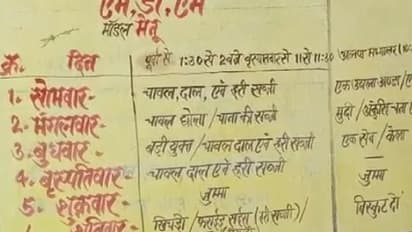 एम. डी. एम
मॉडल मेनू
क्र. दिन पूर्वा से 1:30 से 2 बजे वृहस्पतवार से 11 से 11:30
1. सोमवार- चावल, दाल, एवं हरी सब्जी एक उबला अण्डा/
2. मंगलवार- चावल छोला/ चाना की सब्जी मुढ़ी/ अंकुरित चना
3. बुधवार- बड़ी युक्त/ चावल दाल एवं हरी सब्जी एक सेव/ केला
4. बृहस्पतिवार चावल दाल एवं हरी सब्जी
5. शुक्रवार जुम्मा जुम्मा
शनिवार खिचड़ी/ फ्राईड राईस (हरी सब्जी)/ बिस्कुट दो